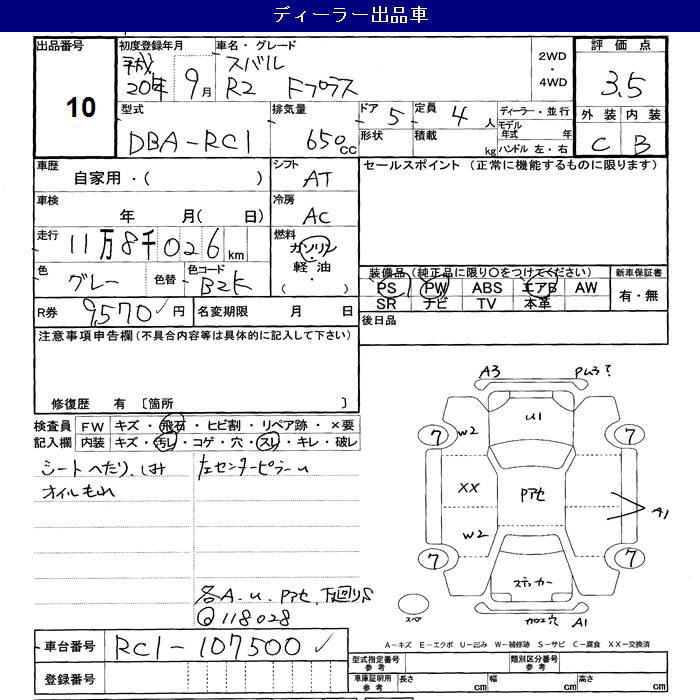 ディーラー出品車
出品番号
10
初度登録年月
平成
20年 9月
車名・グレード
スバル
R2 Fプラス
2WD
・
4WD
評価点
3.5
型式
DBA-RC1
排気量
650cc
ドア 5
形状
定員 4人
積載 kg
ディーラー・並行
モデル
年式 年
ハンドル 左・右
外装 内装
C B
車歴
自家用・( )
シフト
AT
セールスポイント (正常に機能するものに限ります)
車検
年 月( 日)
冷房
AC
走行 11万8千026km
燃料
ガソリン
・
軽油
・
( )
色
グレー
色替
色コード
B2K
装備品(純正品に限り○をつけてください)
PS PW ABS エアB AW
SR ナビ TV 本革
新車保証書
有・無
R券 9,570円
名変期限 月 日
後日品
注意事項申告欄(不具合内容等は具体的に記入して下さい)
修復歴 有 〔箇所 〕
検査員 FW キズ・飛石・ヒビ割・リペア跡・×要
記入欄 内装 キズ・汚レ・コゲ・穴・スレ・キレ・破レ
シートへたり、しみ
オイルもれ
左センターピラーu
各A.u.Pアセ.下廻りS
@118028
A3
PW3?
U1
7
W2
7
XX
Pアセ
W2
A1
7
7
ステッカー
スペア
カロエ穴 A1
A-キズ E-エクボ U-凹み W-補修跡 S-サビ C-腐食 XX-交換済
車台番号 RC1-107500
登録番号
型式指定番号
参考
類別区分番号
参考
車庫証明用
参考
長さ cm
幅 cm
高さ cm